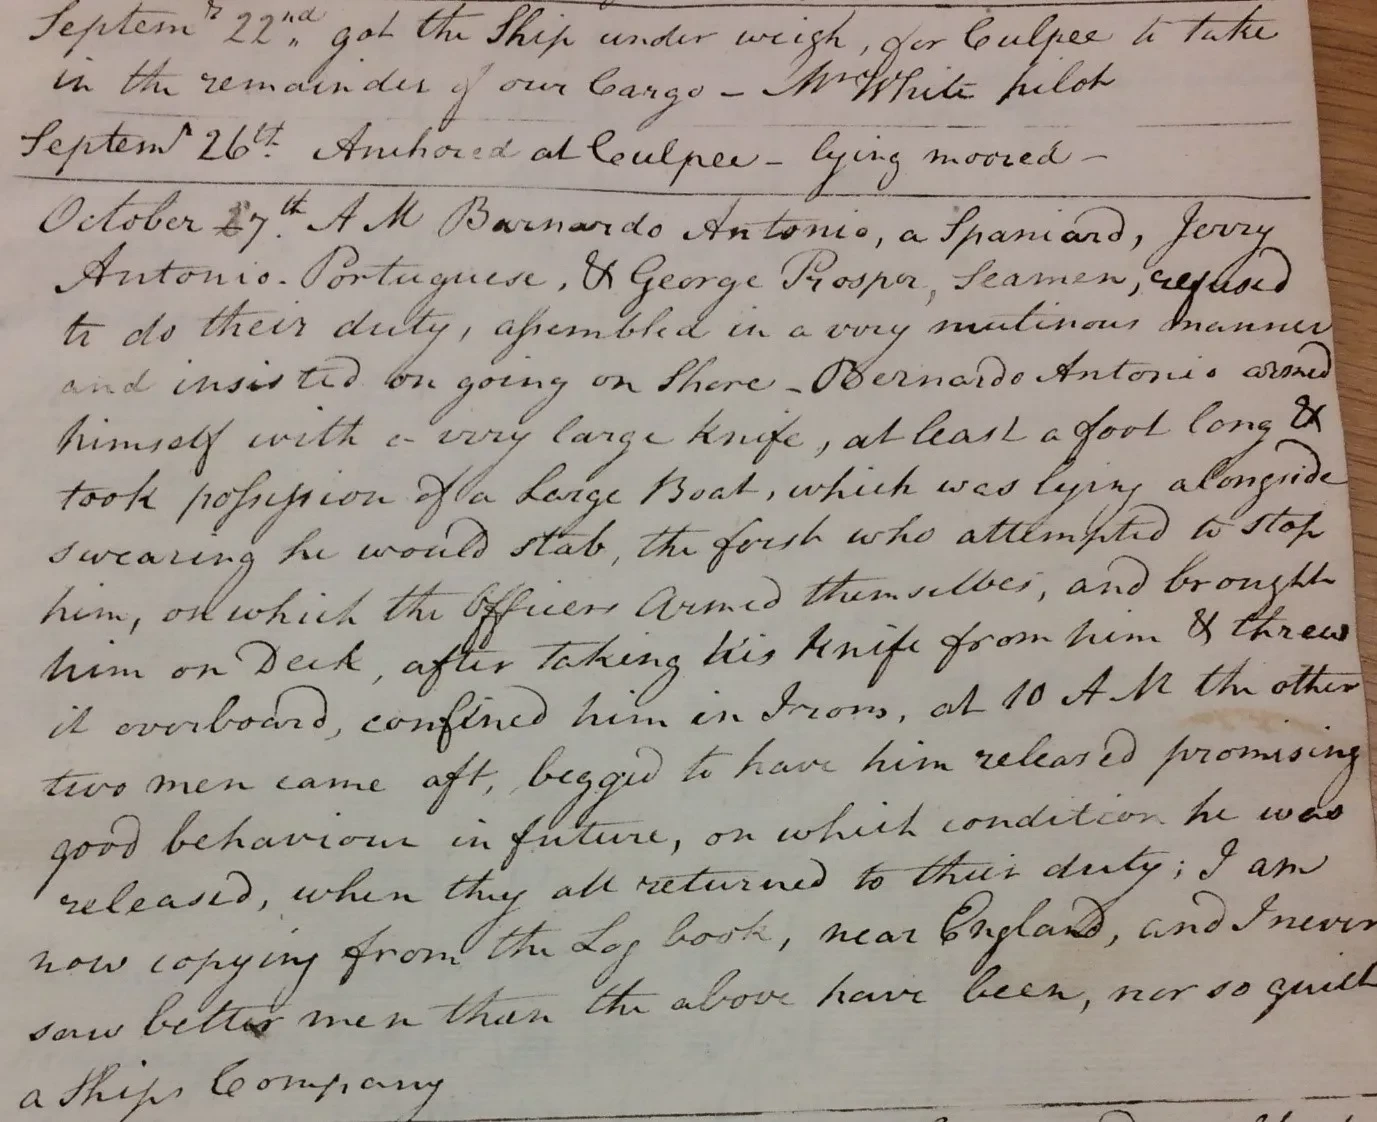 Septemr 22nd got the Ship under weigh, for Culpee to take
in the remainder of our Cargo – Mr White pilot
Septemr 26th. Anchored at Culpee – lying moored –
October 27th. A M Barnardo Antonio, a Spaniard, Jerry
Antonio – Portuguese, & George Prosper, Seamen, refused
to do their duty, assembled in a very mutinous manner
and insisted on going on Shore – Bernardo Antonio armed
himself with a very large knife, at least a foot long &
took possession of a Large Boat, which was lying alongside
swearing he would stab, the first who attempted to stop
him, on which the Officers Armed themselves, and brought
him on Deck, after taking his knife from him & threw
it overboard, confined him in Irons, at 10 A M the other
two men came aft, begged to have him released promising
good behaviour in future, on which condition he was
released, when they all returned to their duty; I am
now copying from the Log book, near England, and I never
saw better men than the above have been, nor so quiet
a Ships Company